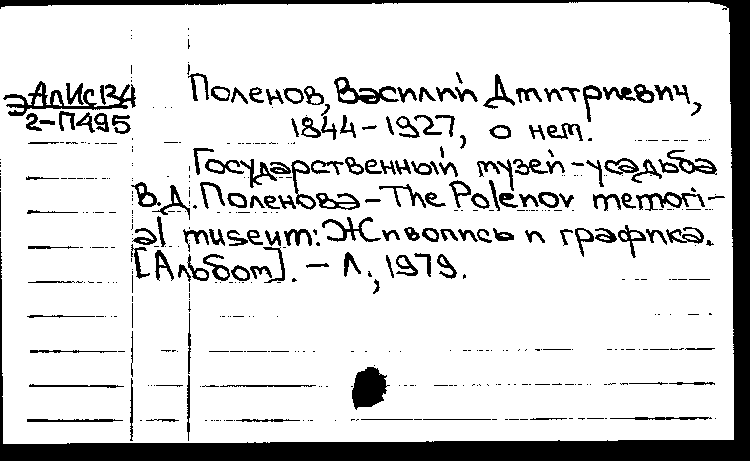 Поленов, Василий Дмитриевич,
1844-1927, о нем.
Государственный музей-усадьба
В.Д. Поленова-The Polenov memori-
al museum: Живопись и графика.
[Альбом]. - Л., 1979.
2-П495